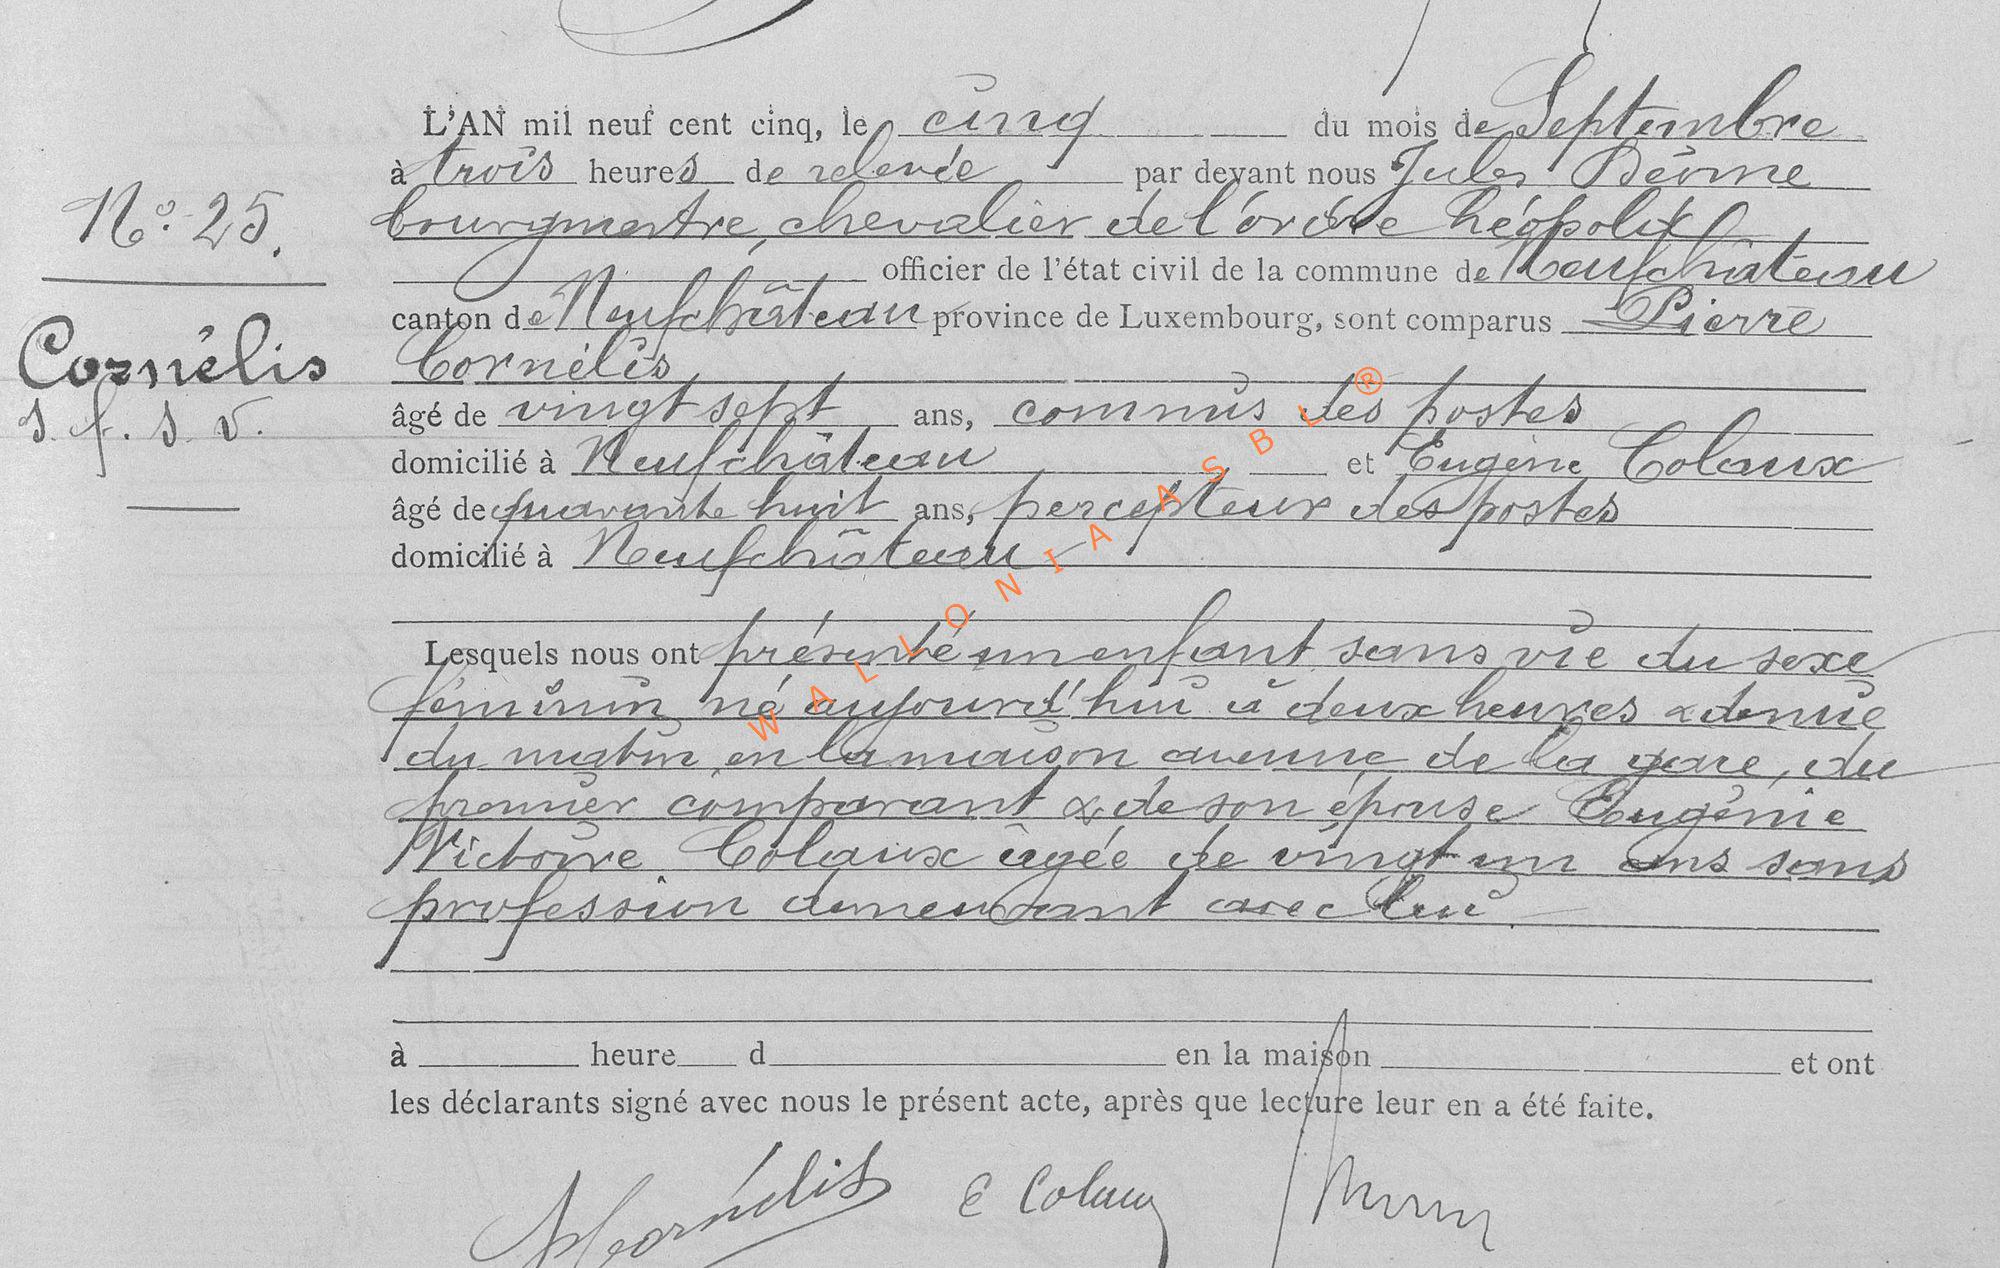 L'AN mil neuf cent cinq, le cinq du mois de Septembre
à trois heures de relevée par devant nous Jules
bourgmestre, chevalier de l'ordre Léopold
officier de l'état civil de la commune de Neufchâteau
canton de Neufchâteau province de Luxembourg, sont comparus Pierre
Cornélis
âgé de vingt sept ans, commis des postes
domicilié à Neufchâteau et Eugène Colaux
âgé de quarante huit ans, percepteur des postes
domicilié à Neufchâteau
Lesquels nous ont présenté un enfant sans vie du sexe
féminin né aujourd'hui à deux heures & demie
du matin en la maison avenue de la gare, du
premier comparant & de son épouse Eugénie
Victoire Colaux âgée de vingt un ans sans
profession demeurant avec lui
à heure d en la maison et ont
les déclarants signé avec nous le présent acte, après que lecture leur en a été faite.
Cornélis E Colaux
N° 25.
Cornélis
s. f. s. v.
WALLONIA ASBL ®